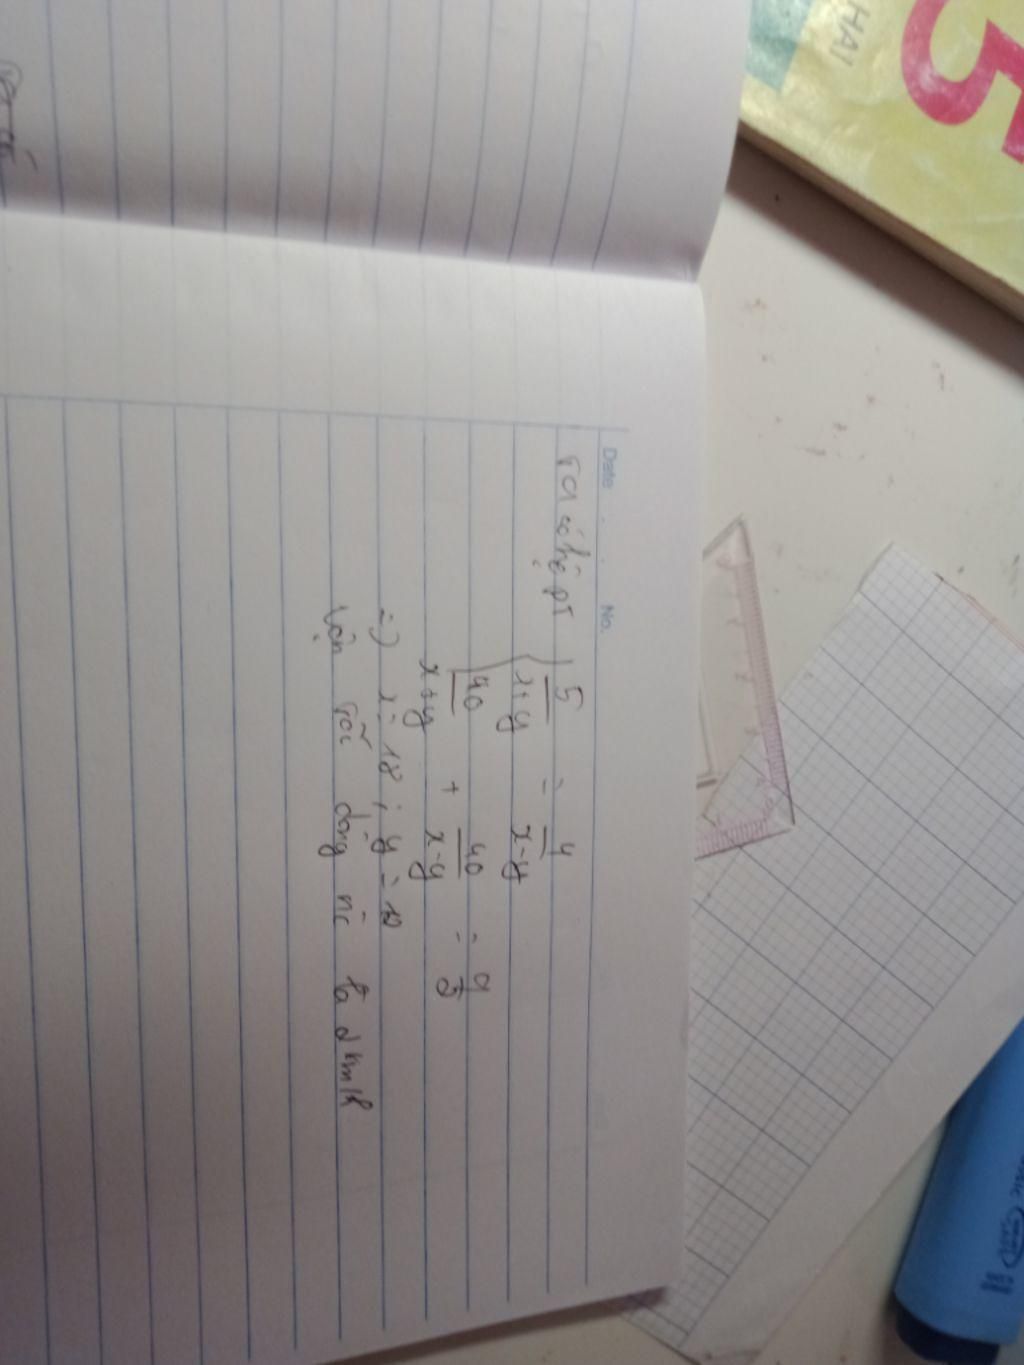 Date: . . No.
Ta có hệ PT { 5/(x+y) = 4/(x-y)
40/(x+y) + 40/(x-y) = 9/2
=> x = 18 ; y =
Vận tốc dòng nc là 2 km/h
HAI
5